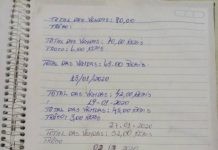 TOTAL DAS VENDAS: 90,00
TROCO:
TOTAL DAS VENDAS: 40,00 REAIS
TROCO: 6,00 REAIS
TOTAL DAS VENDAS: 49.00 REAIS
23/01/2020
TOTAL DAS VENDAS: 42,00 REAIS
29-09-2020
TOTAL DAS VENDAS: 42,00 REAIS
TROCO: 3,00 REAIS
27-09-2020
TOTAL DAS VENDAS: 52,00
TROCO:
2020